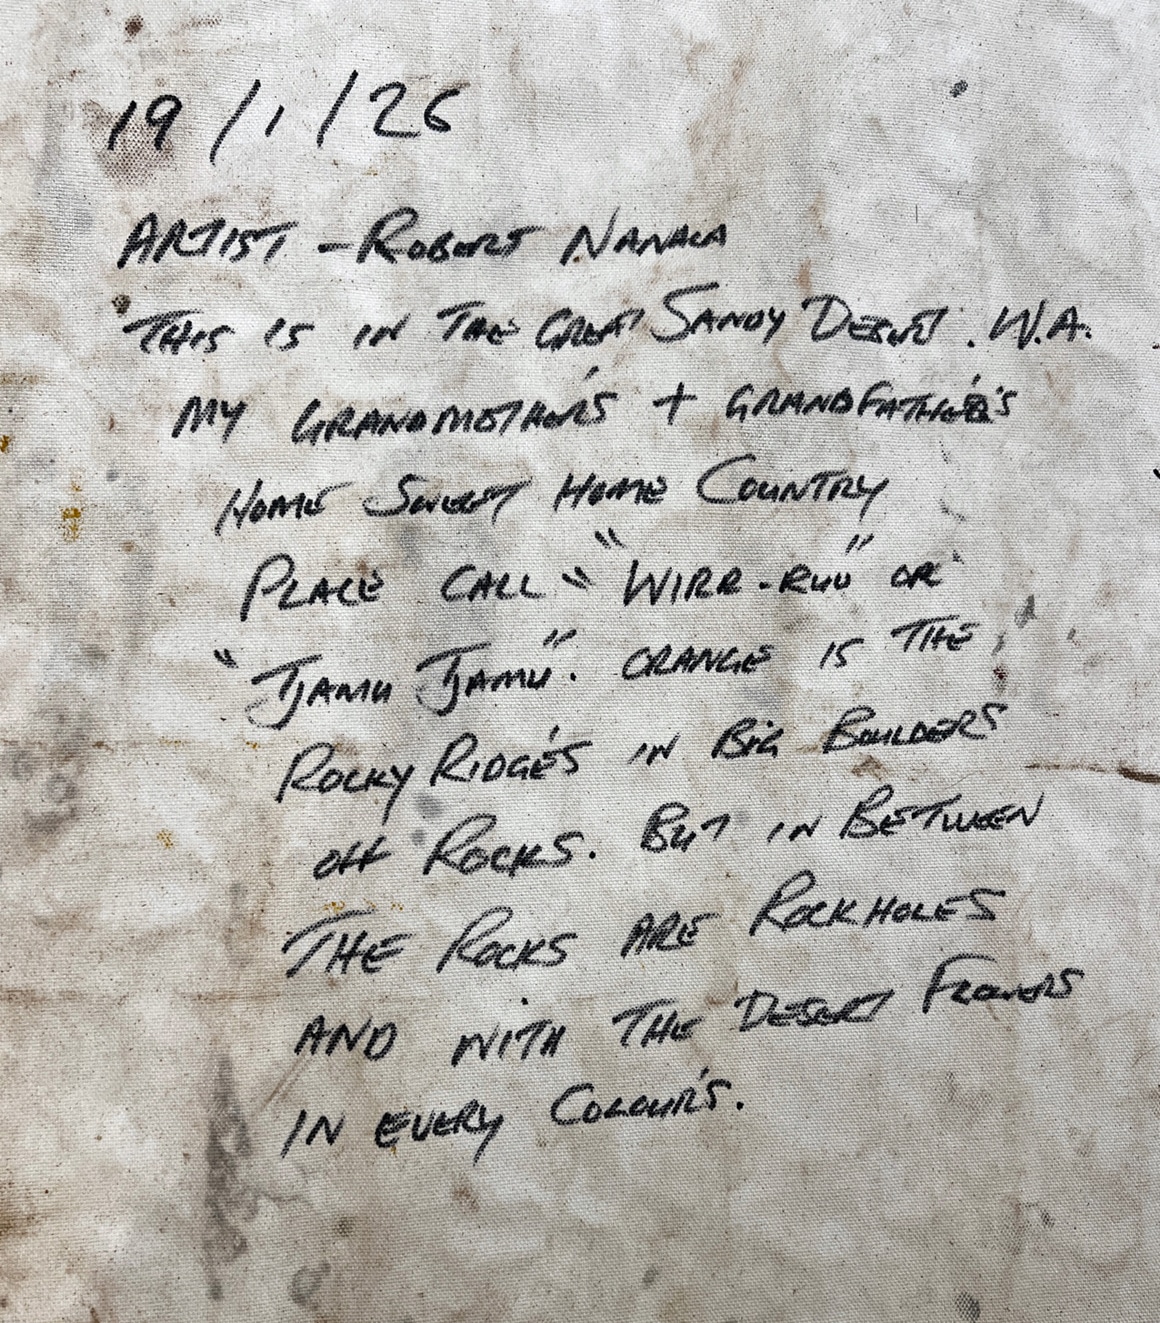 19/1/26
ARTIST - ROBERT NANALA
THIS IS IN THE GREAT SANDY DESERT. W.A.
MY GRANDMOTHER'S + GRANDFATHER'S
HOME SWEET HOME COUNTRY
PLACE CALL "WIRR-RUU" OR
"TJAMU TJAMU". ORANGE IS THE
ROCKY RIDGE'S IN BIG BOULDERS
OFF ROCKS. BUT IN BETWEEN
THE ROCKS ARE ROCKHOLES
AND WITH THE DESERT FLOWERS
IN EVERY COLOUR'S.